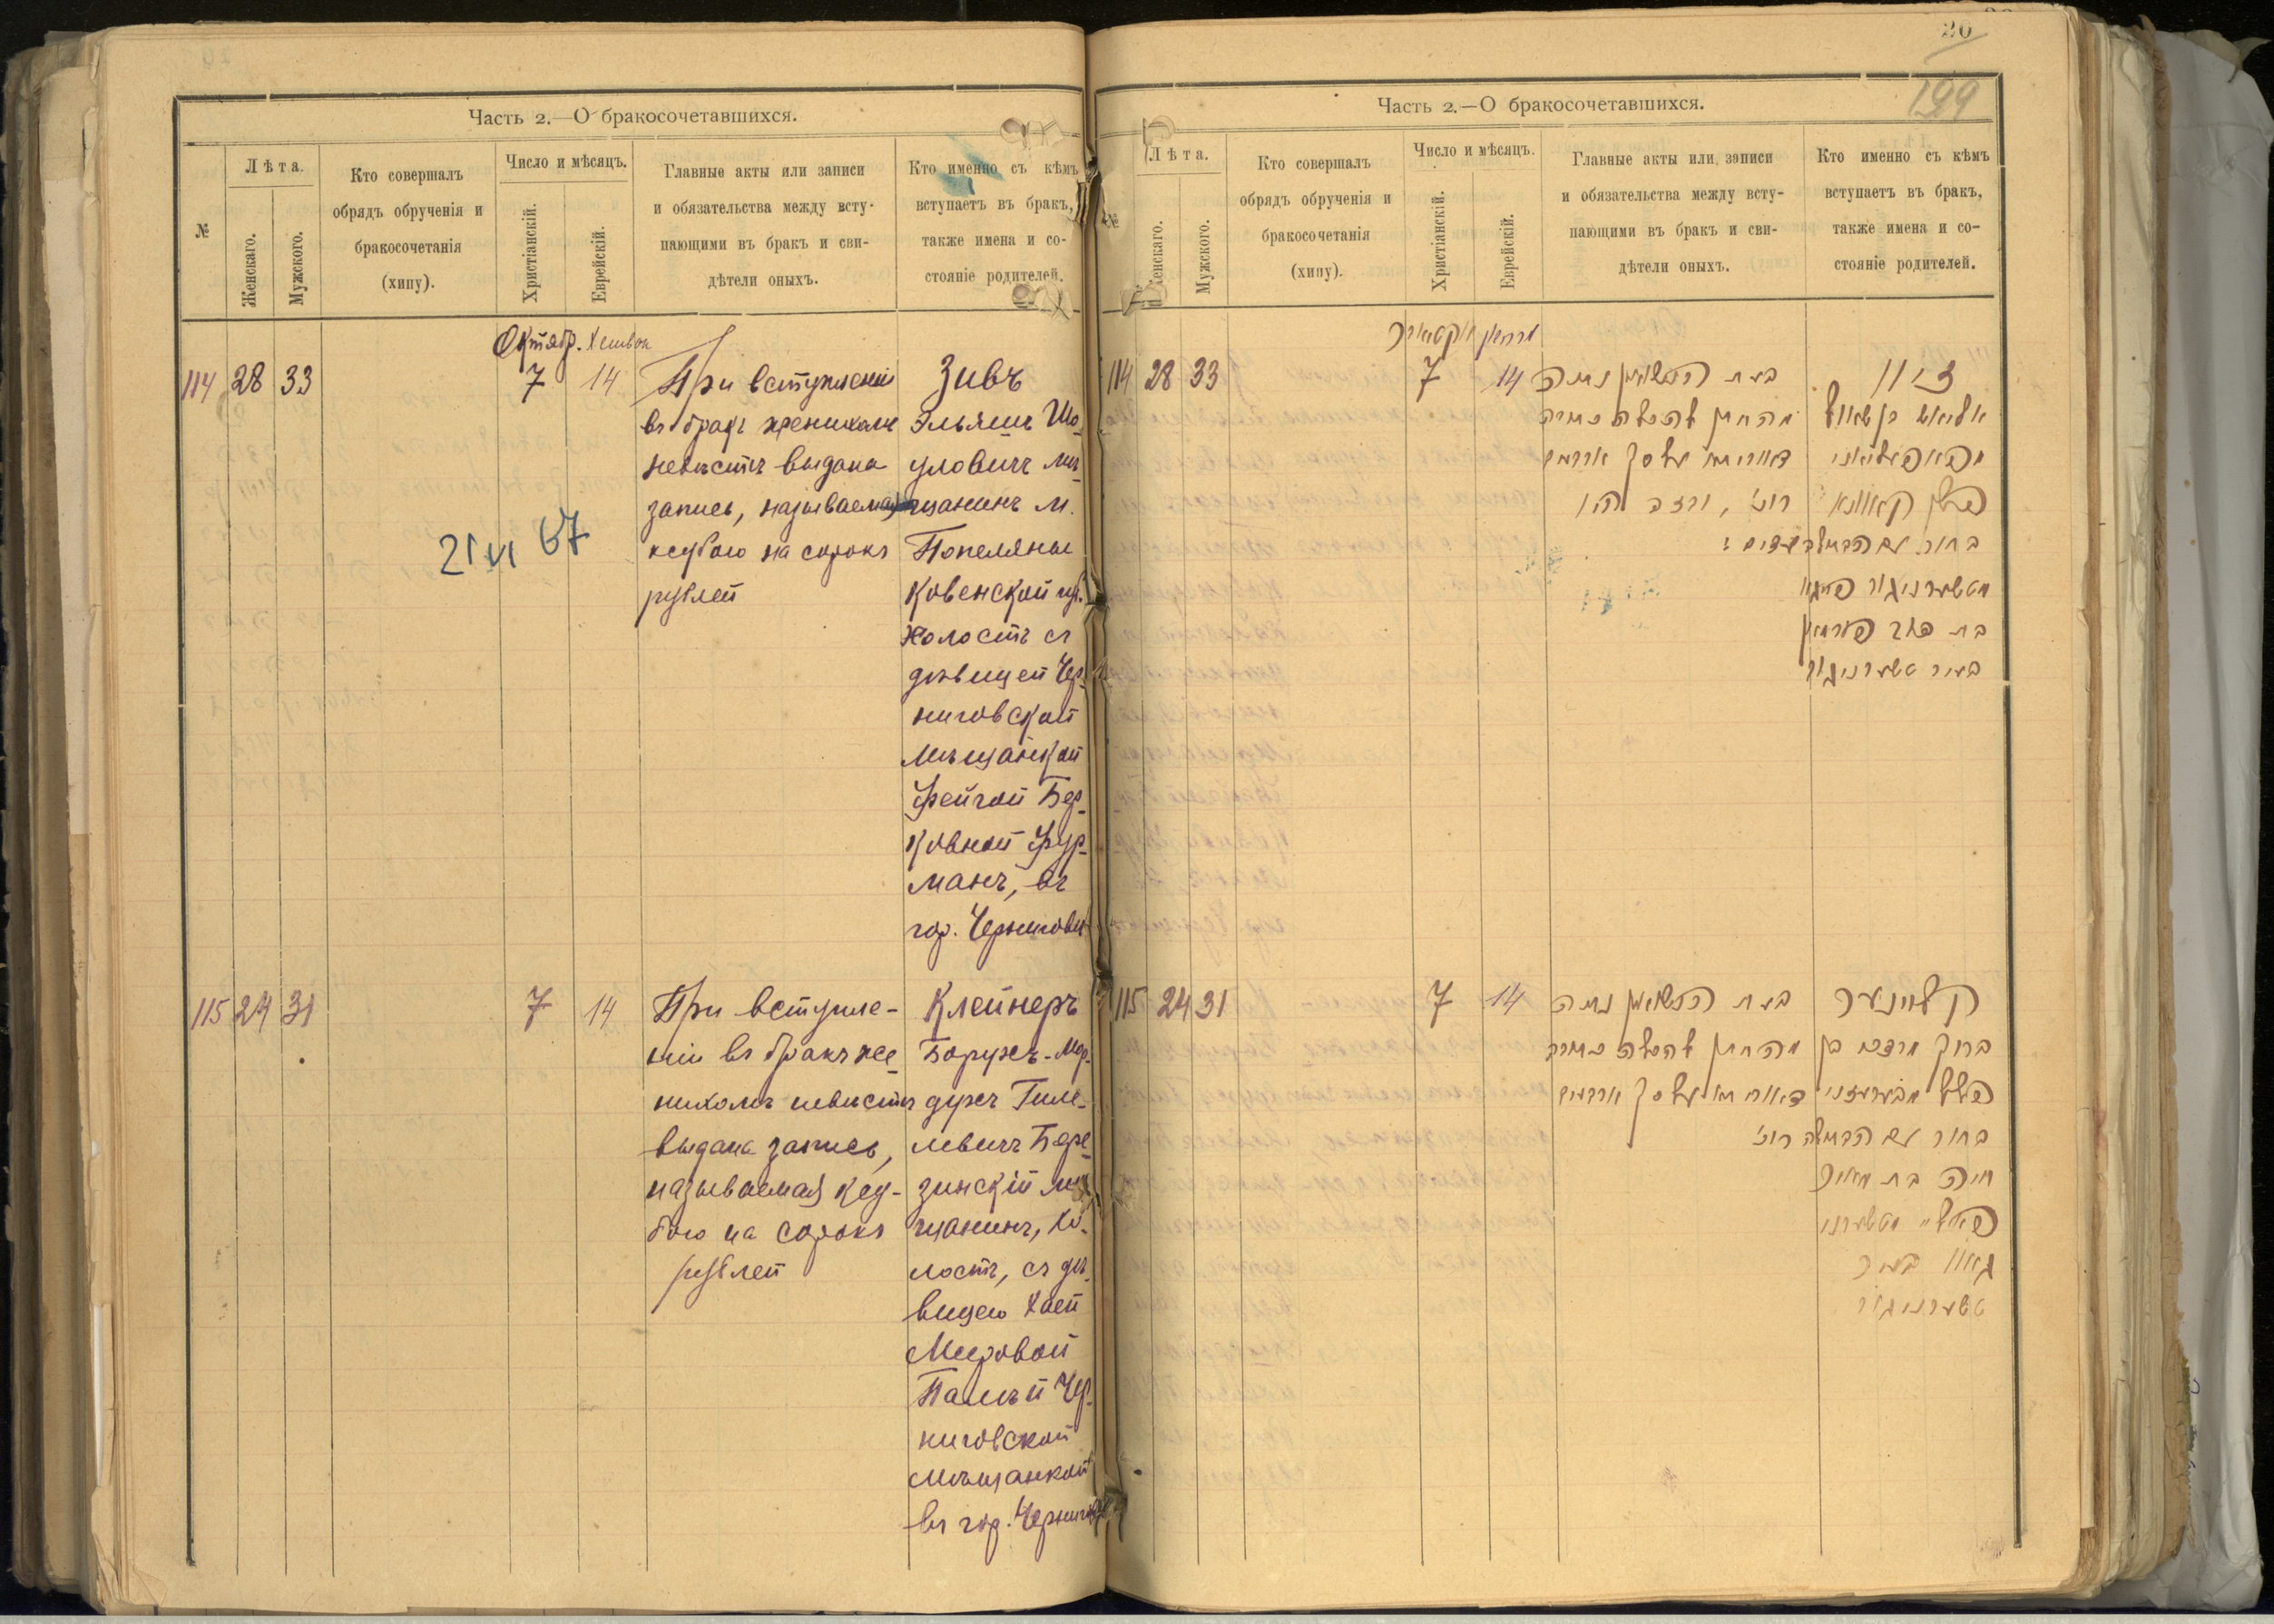 Часть 2.—О бракосочетавшихся.
№
Лѣта.
Женскаго.
Мужского.
Кто совершалъ
обрядъ обрученія и
бракосочетанія
(хипу).
Число и мѣсяцъ.
Христіанскій.
Еврейскій.
Главные акты или записи
и обязательства между всту-
пающими въ бракъ и сви-
дѣтели оныхъ.
Кто именно съ кѣмъ
вступаетъ въ бракъ,
также имена и со-
стояніе родителей.
Октябр. Хешвон
114 28 33 7 14
При вступленіи
въ бракъ женихомъ
невѣстѣ выдана
запись, называемая
ксубою на сорокъ
рублей
Зивъ
Эльяшъ Шо-
уловичъ мѣ-
щанинъ м.
Попеляны
Ковенской губ.
холостъ съ
дѣвицей Чер-
ниговской
мѣщанкой
Фейгой Бер-
ковной Фур-
манъ, въ
гор. Черниговѣ
21 VI 67
115 24 31 7 14
При вступле-
ніи въ бракъ же-
нихомъ невѣстѣ
выдана запись,
называемая ксу-
бою на сорокъ
рублей
Клейнеръ
Борухъ-Мор-
духъ Гиле-
левичъ Бере-
зинскій мѣ-
щанинъ, хо-
лостъ, съ дѣ-
вицею Хаей
Мееровой
Палѣй Чер-
ниговской
мѣщанкой
въ гор. Черниговѣ
20
199
Часть 2.—О бракосочетавшихся.
№
Лѣта.
Женскаго.
Мужского.
Кто совершалъ
обрядъ обрученія и
бракосочетанія
(хипу).
Число и мѣсяцъ.
Христіанскій.
Еврейскій.
Главные акты или записи
и обязательства между всту-
пающими въ бракъ и сви-
дѣтели оныхъ.
Кто именно съ кѣмъ
вступаетъ въ бракъ,
также имена и со-
стояніе родителей.
114 28 33 7 14
בעת הנשואין נתנה
מהחתן להכלה כתובה
זיוו
אליאש בן שאול
בת בער פורמאן
בעיר טשערניגוב
115 24 31 7 14
בעת הנשואין נתנה
מהחתן להכלה כתובה
קליינער
ברוך מרדכי בן
חיה בת מאיר
טשערניגוב